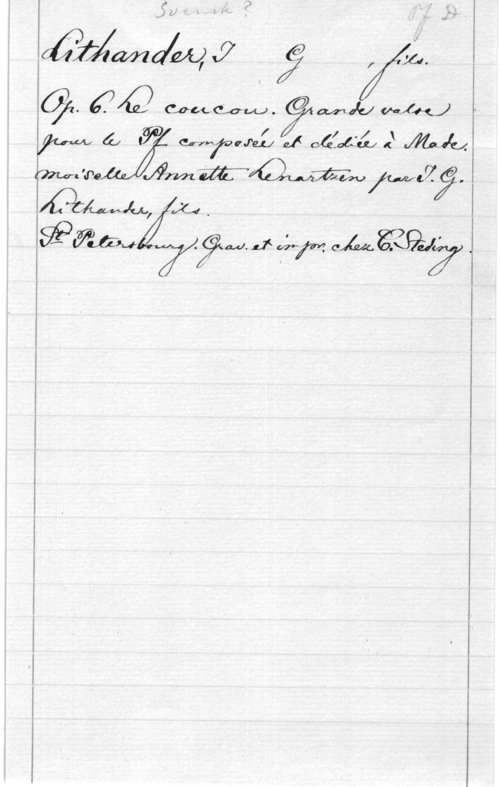 Svensk? Pf D
Lithander, J G , fils.
Op. 6. Le coucou. Grande valse
pour le Pf composée et dédiée à Made.
moiselle Annette Lenartzen par J. G.
Lithander, fils.
St Petersbourg. Grav. et impr. chez C. Steding.